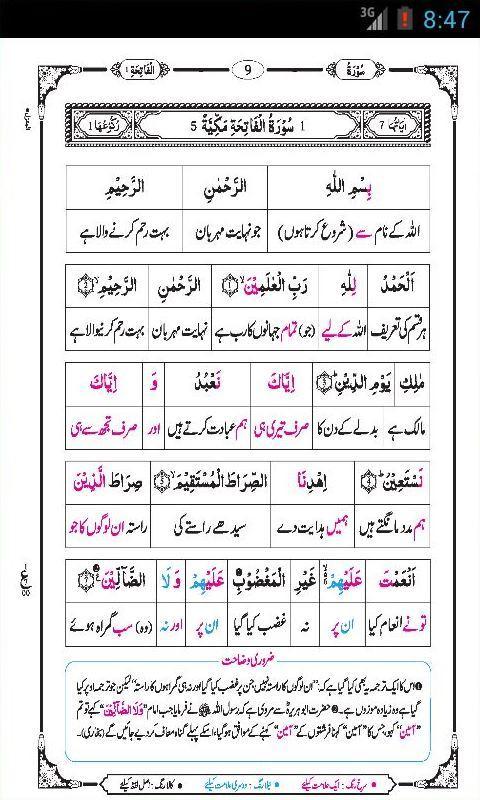 3G 8:47
سُوْرَةُ 9 اَلْفَاتِحَةِ ۱
اٰیَاتُهَا 7 1 سُوْرَةُ الْفَاتِحَةِ مَکِّیَّةٌ 5 رُکُوْعُهَا 1
بِسْمِ اللّٰهِ الرَّحْمٰنِ الرَّحِیْمِ
اللہ کے نام سے (شروع کرتا ہوں) جو نہایت مہربان بہت رحم کرنے والا ہے
اَلْحَمْدُ لِلّٰهِ رَبِّ الْعٰلَمِیْنَ ۙ ۝1 الرَّحْمٰنِ الرَّحِیْمِ ۙ ۝2
ہر قسم کی تعریف اللہ کے لیے (جو) تمام جہانوں کا رب ہے نہایت مہربان بہت رحم کرنیوالا ہے
مٰلِكِ یَوْمِ الدِّیْنِ ؕ ۝3 اِیَّاكَ نَعْبُدُ وَ اِیَّاكَ
مالک ہے بدلے کے دن کا صرف تیری ہی ہم عبادت کرتے ہیں اور صرف تجھ سے ہی
نَسْتَعِیْنُ ؕ ۝4 اِهْدِنَا الصِّرَاطَ الْمُسْتَقِیْمَ ۙ ۝5 صِرَاطَ الَّذِیْنَ
ہم مدد مانگتے ہیں ہمیں ہدایت دے سیدھے راستے کی راستہ ان لوگوں کا جو
اَنْعَمْتَ عَلَیْهِمْ ۙ۬ ۝6 غَیْرِ الْمَغْضُوْبِ عَلَیْهِمْ وَلَا الضَّآلِّیْنَ ۝7
تو نے انعام کیا ان پر نہ غضب کیا گیا ان پر اور نہ (وہ) سب گمراہ ہوئے
ضروری وضاحت
❶ اس کا ایک ترجمہ یہ بھی کیا گیا ہے کہ: "ان لوگوں کا راستہ نہیں جن پر غضب کیا گیا اور نہ ہی گمراہوں کا راستہ" لیکن جو ترجمہ اوپر کیا
گیا ہے وہ زیادہ موزوں ہے۔ ❷ حضرت ابو ہریرہؓ سے مروی ہے کہ رسول اللہ ﷺ نے فرمایا جب امام "وَلَا الضَّآلِّیْنَ" کہے تو تم
"آمین" کہو، جس کا "آمین" کہنا فرشتوں کے "آمین" کہنے کے موافق ہو گیا، اسکے پہلے گناہ معاف کر دیے جائیں گے (بخاری)۔
سرخ رنگ: ایک علامت کیلئے نیلا رنگ: دوسری علامت کیلئے کالا رنگ: اصل لفظ کیلئے